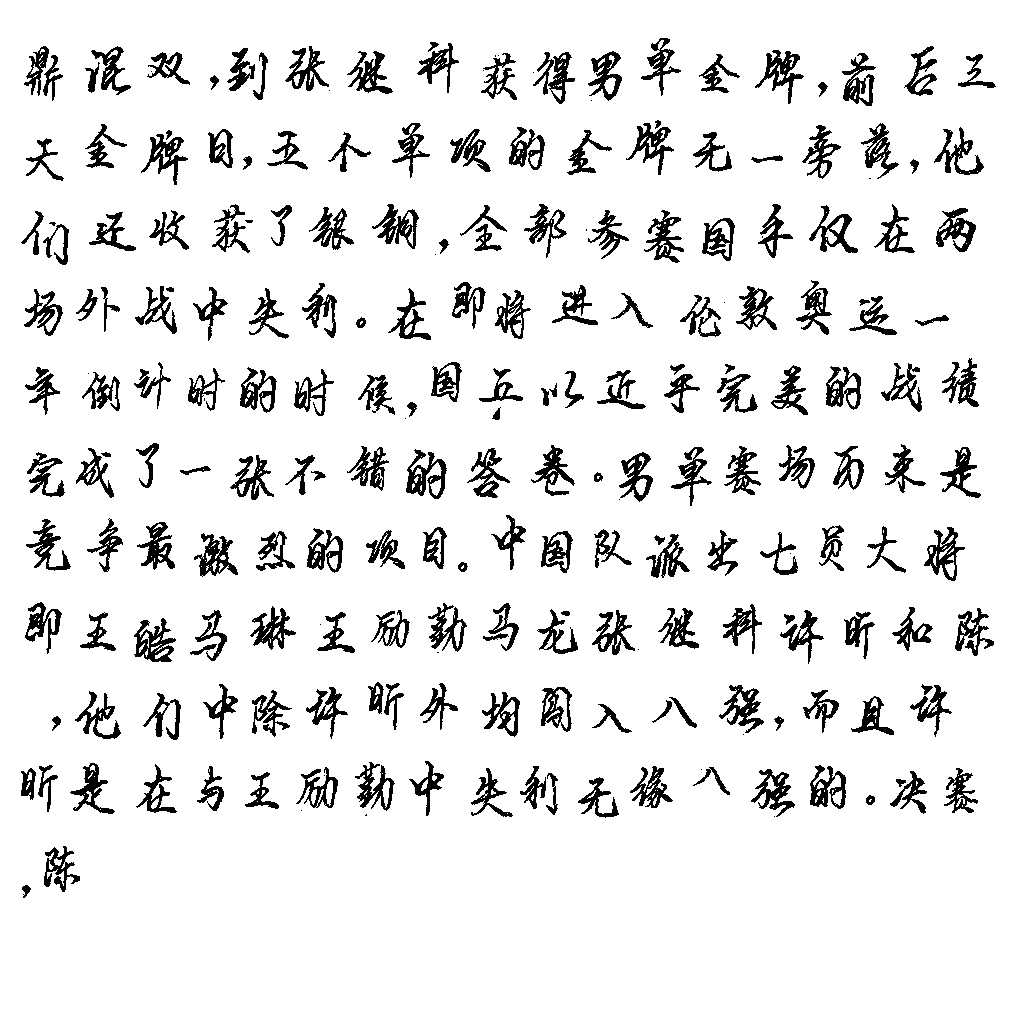 鼎混双,到张继科获得男单金牌,前后三
天金牌日,五个单项的金牌无一旁落,他
们还收获了银铜,全部参赛国手仅在两
场外战中失利。在即将进入伦敦奥运一
年倒计时的时候,国乒以近乎完美的战绩
完成了一张不错的答卷。男单赛场历来是
竞争最激烈的项目。中国队派出七员大将
即王皓马琳王励勤马龙张继科许昕和陈
,他们中除许昕外均闯入八强,而且许
昕是在与王励勤中失利无缘八强的。决赛
,陈